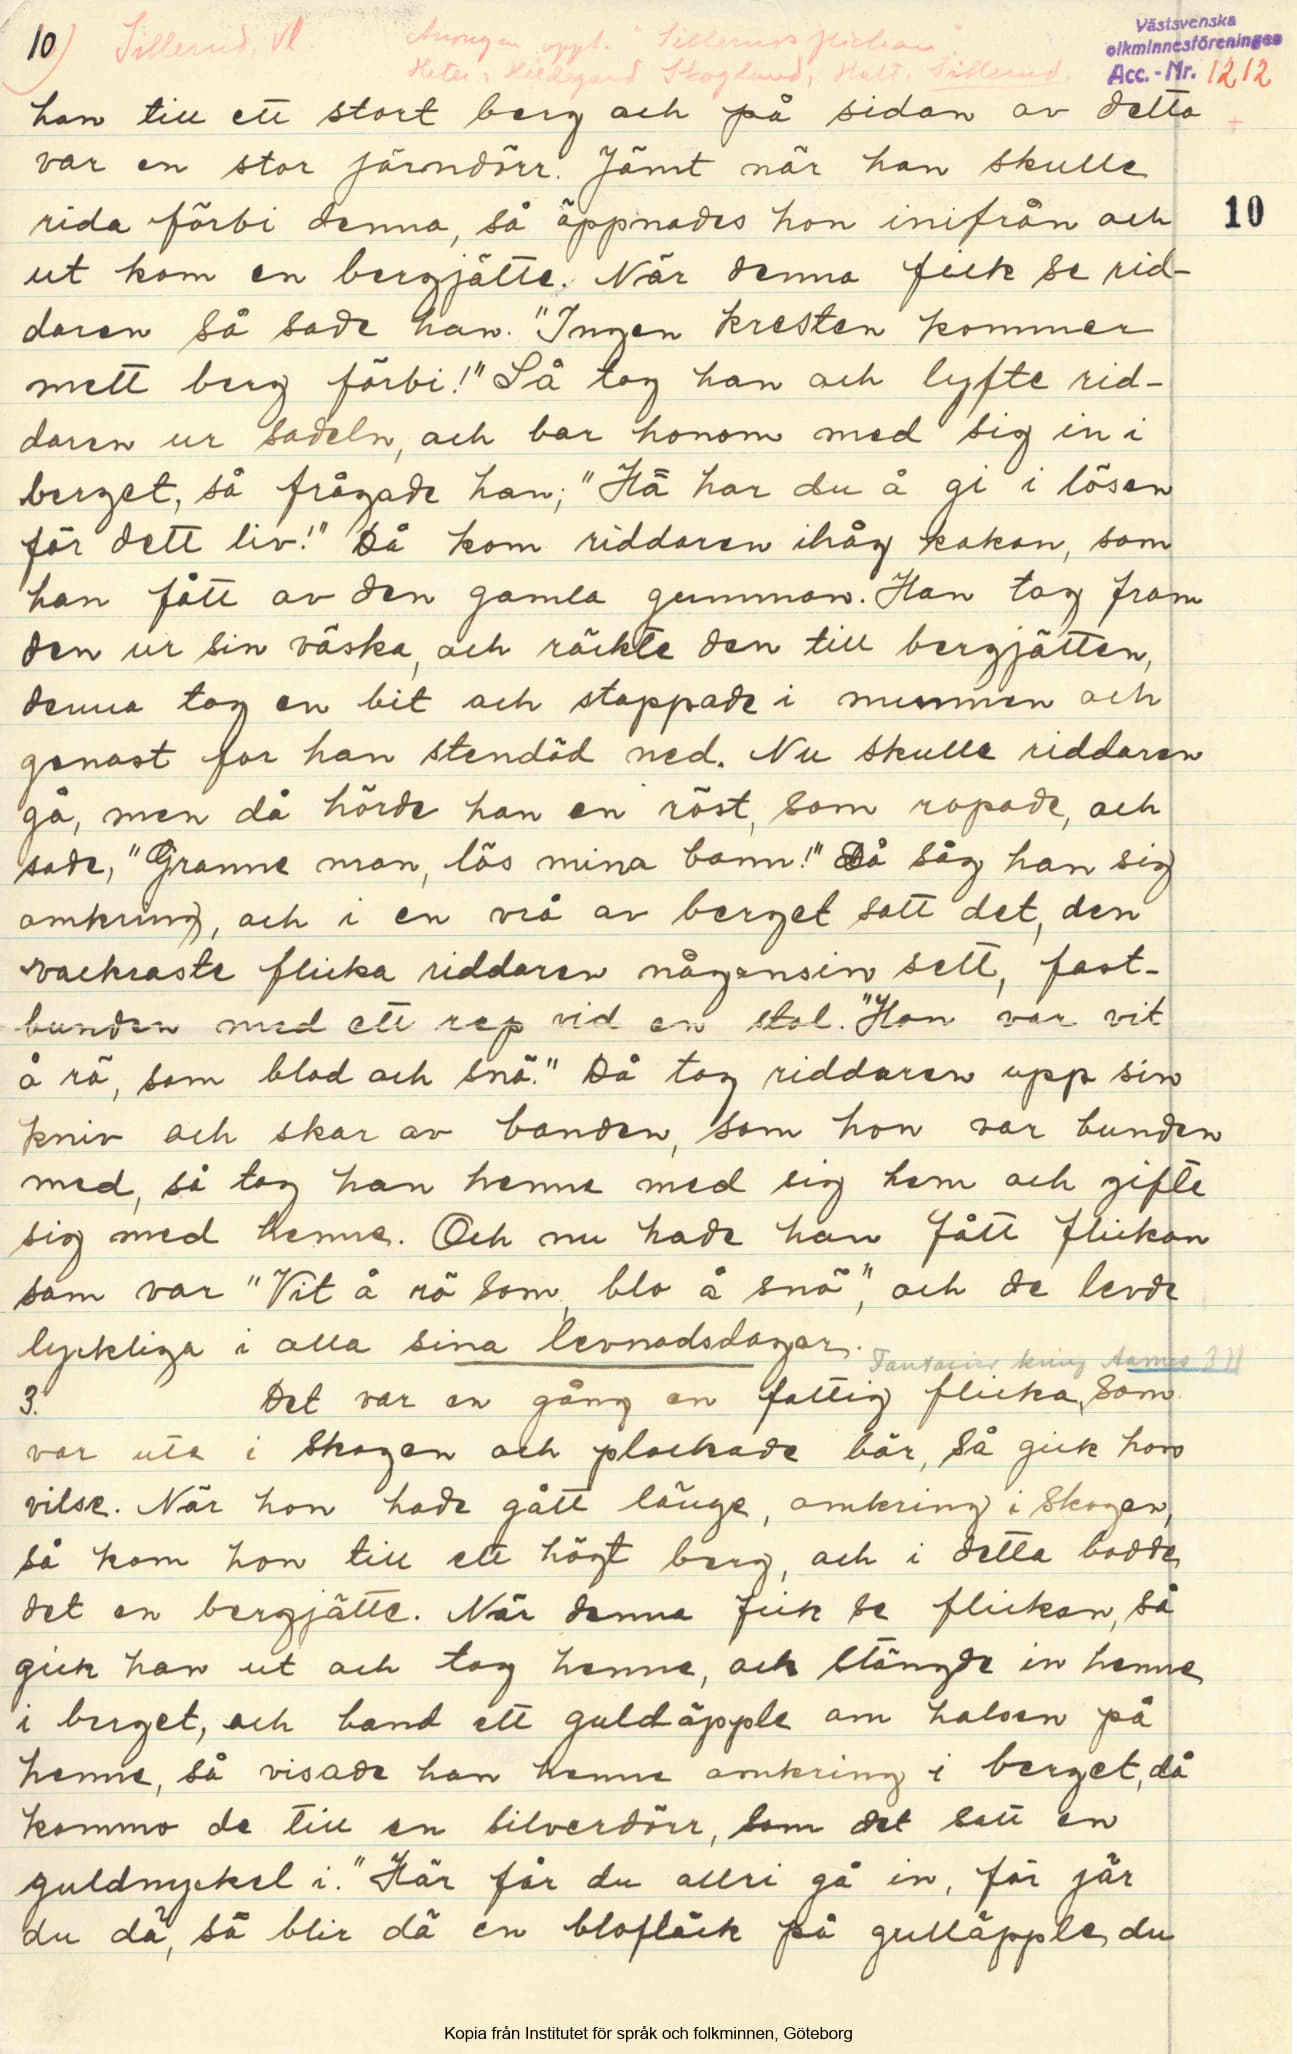 10) Sillerud, Vl
Anonym uppt. "Sillerudsflickan".
Heter: Hildegard Skoglund, Hult, Sillerud.
Västsvenska
olkminnesföreningen
Acc.-Nr. 1212
10
han till ett stort berg och på sidan av detta
var en stor järndörr. Jämt när han skulle
rida förbi denna, så öppnades hon inifrån och
ut kom en bergjätte. När denna fick se rid-
daren så sade han. "Ingen kresten kommer
mett berg förbi!" Så tog han och lyfte rid-
daren ur sadeln, och bar honom med sig in i
berget, så frågade han; "Hä har du å gi i lösen
för dett liv!" Då kom riddaren ihåg kakan, som
han fått av den gamla gumman. Han tog fram
den ur sin väska, och räckte den till bergjätten,
denna tog en bit och stoppade i munnen och
genast for han stendöd ned. Nu skulle riddaren
gå, men då hörde han en röst, som ropade, och
sade, "Granne man, lös mina bann!" Då såg han sig
omkring, och i en vrå av berget satt det, den
vackraste flicka riddaren någonsin sett, fast-
bunden med ett rep vid en stol. "Hon var vit
å rö, som blod och snö." Då tog riddaren upp sin
kniv och skar av banden, som hon var bunden
med, så tog han henne med sig hem och gifte
sig med henne. Och nu hade han fått flickan
som var "Vit å rö som, blo å snö", och de levde
lyckliga i alla sina levnadsdagar.
Fantasier kring Aarnes 311
3. Det var en gång en fattig flicka, som
var ute i skogen och plockade bär, så gick hon
vilse. När hon hade gått länge, omkring i skogen,
så kom hon till ett högt berg, och i detta bodde
det en bergjätte. När denna fick se flickan, så
gick han ut och tog henne, och stängde in henne
i berget, och band ett guldäpple om halsen på
henne, så visade han henne omkring i berget, då
kommo de till en silverdörr, som det satt en
guldnyckel i. "Här får du allri gå in, för gär
du dä, så blir dä en blofläck på gulläpple, du
Kopia från Institutet för språk och folkminnen, Göteborg